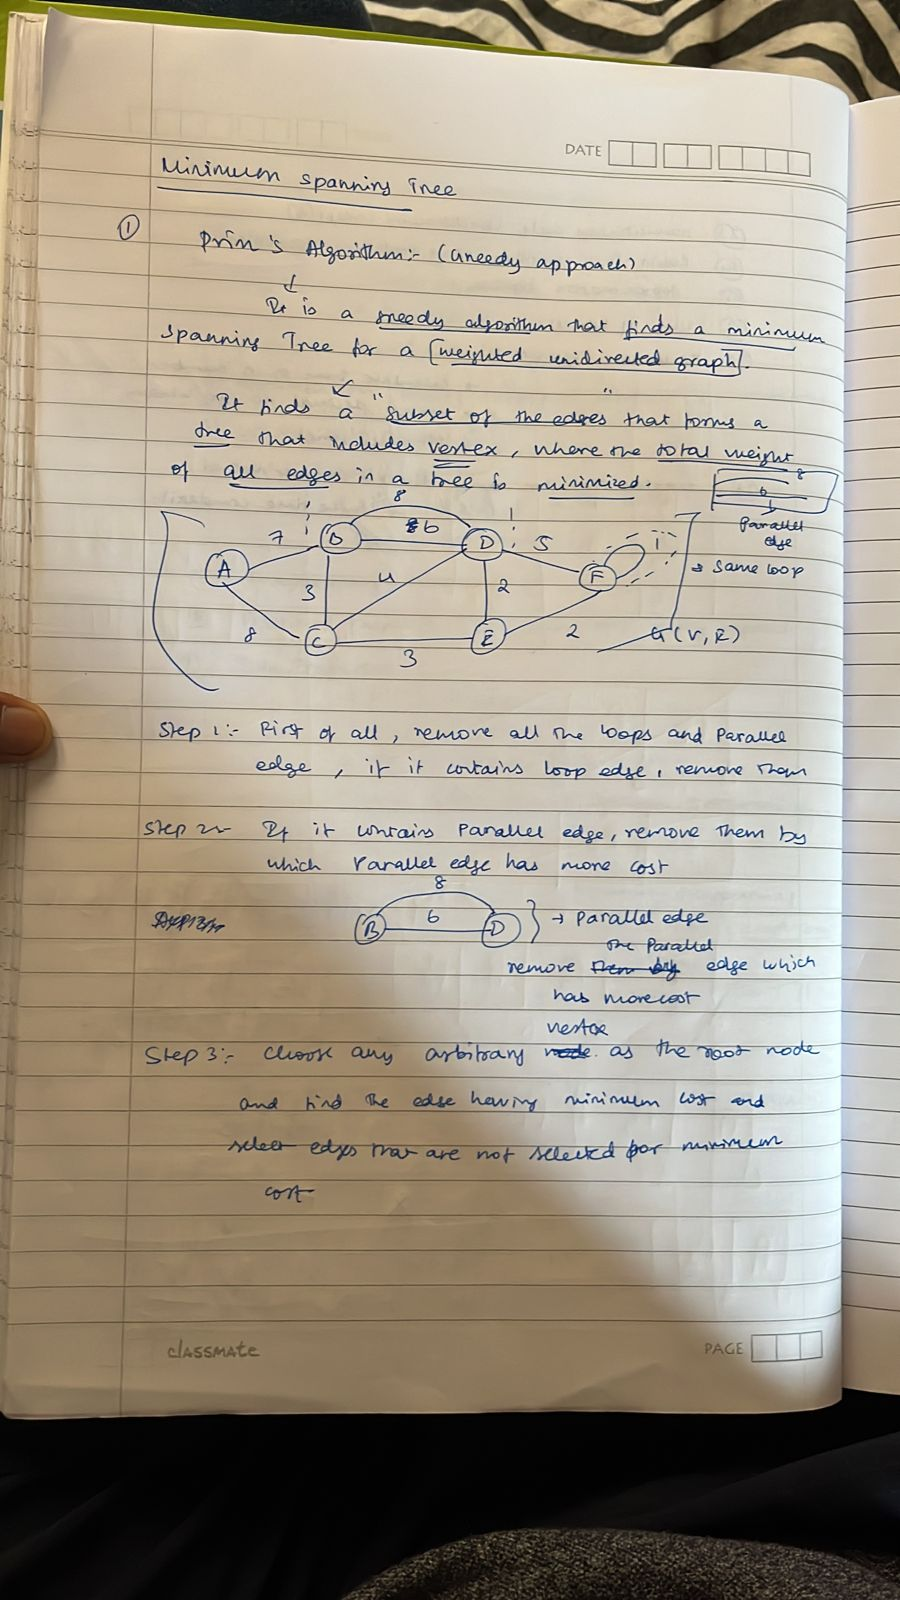 DATE
Minimum Spanning Tree
① Prim's Algorithm:- (Greedy approach)
It is a greedy algorithm that finds a minimum
Spanning Tree for a [weighted unidirected graph].
It finds a "subset of the edges" that forms a
tree that includes vertex, where the total weight
of all edges in a tree is minimized.
8
6
Parallel
edge
8
7 B 6 D 5 F 1
A → Same loop
3 4 2
8 C 3 E 2 G(V,E)
Step 1:- First of all, remove all the loops and Parallel
edge, if it contains loop edge, remove them
Step 2:- If it contains Parallel edge, remove them by
which Parallel edge has more cost
8
B 6 D } → Parallel edge
the Parallel
remove them by edge which
has more cost
vertex
Step 3:- Choose any arbitrary node as the root node
and find the edge having minimum cost and
select edges that are not selected for minimum
cost
classmate
PAGE